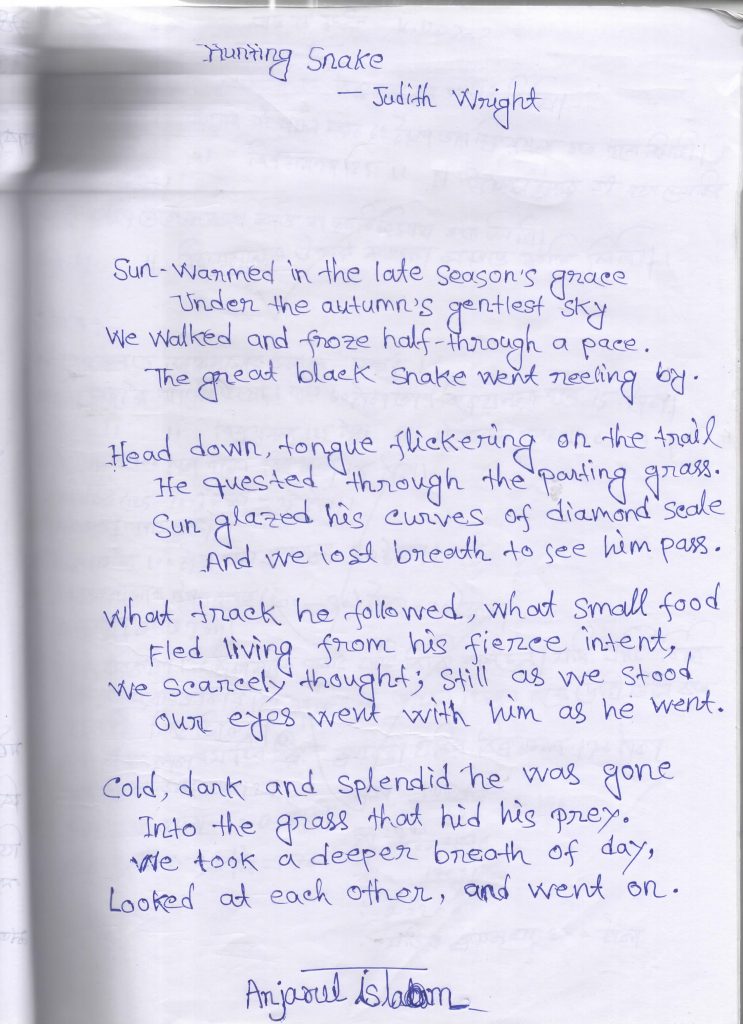 Hunting Snake
— Judith Wright
Sun-warmed in the late season's grace
Under the autumn's gentlest sky
We walked and froze half-through a pace.
The great black snake went reeling by.
Head down, tongue flickering on the trail
He quested through the parting grass.
Sun glazed his curves of diamond scale
And we lost breath to see him pass.
What track he followed, what small food
Fled living from his fierce intent,
We scarcely thought; still as we stood
our eyes went with him as he went.
Cold, dark and splendid he was gone
Into the grass that hid his prey.
We took a deeper breath of day,
Looked at each other, and went on.
Anjarul islam